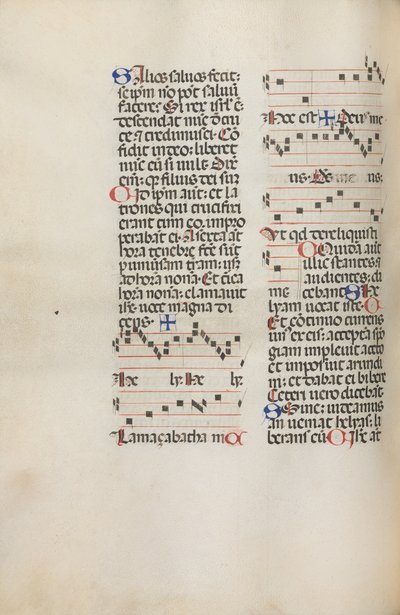 Alios saluos fecit:
seipm no pot saluū
facere: Si rex isrl ē
descendat nūc d cru
ce ⁊ credimus ei. Cō
fidit in deo: liberet
nūc eū si uult. Dix
em: qr filius dei sum
id ipm aut: et la
trones qui crucifixi
erant cum eo. impro
perabāt ei. A sexta āt
hora tenebre fcē sūt
p uniuersam tram: usqꝫ
ad horā nonā. Et circa
horā nonā: clamauit
iħs uoce magna di
cens.
Hely. Hely.
Lamaçabatha ni
Hoc est Deus me
us. Deus meus:
Ut qd dereliquisti
me
Quidā aūt
illic stantes ⁊
audientes: di
cebant. He
lyam uocat iste.
Et continuo currens
un' ex eis: acceptā spō
giam impleuit aceto
et imposuit arundi
ni: et dabat ei bibere
Ceteri uero dicebāt
Sine: uideamus
an ueniat helyas: li
berans eū. Iħs āt